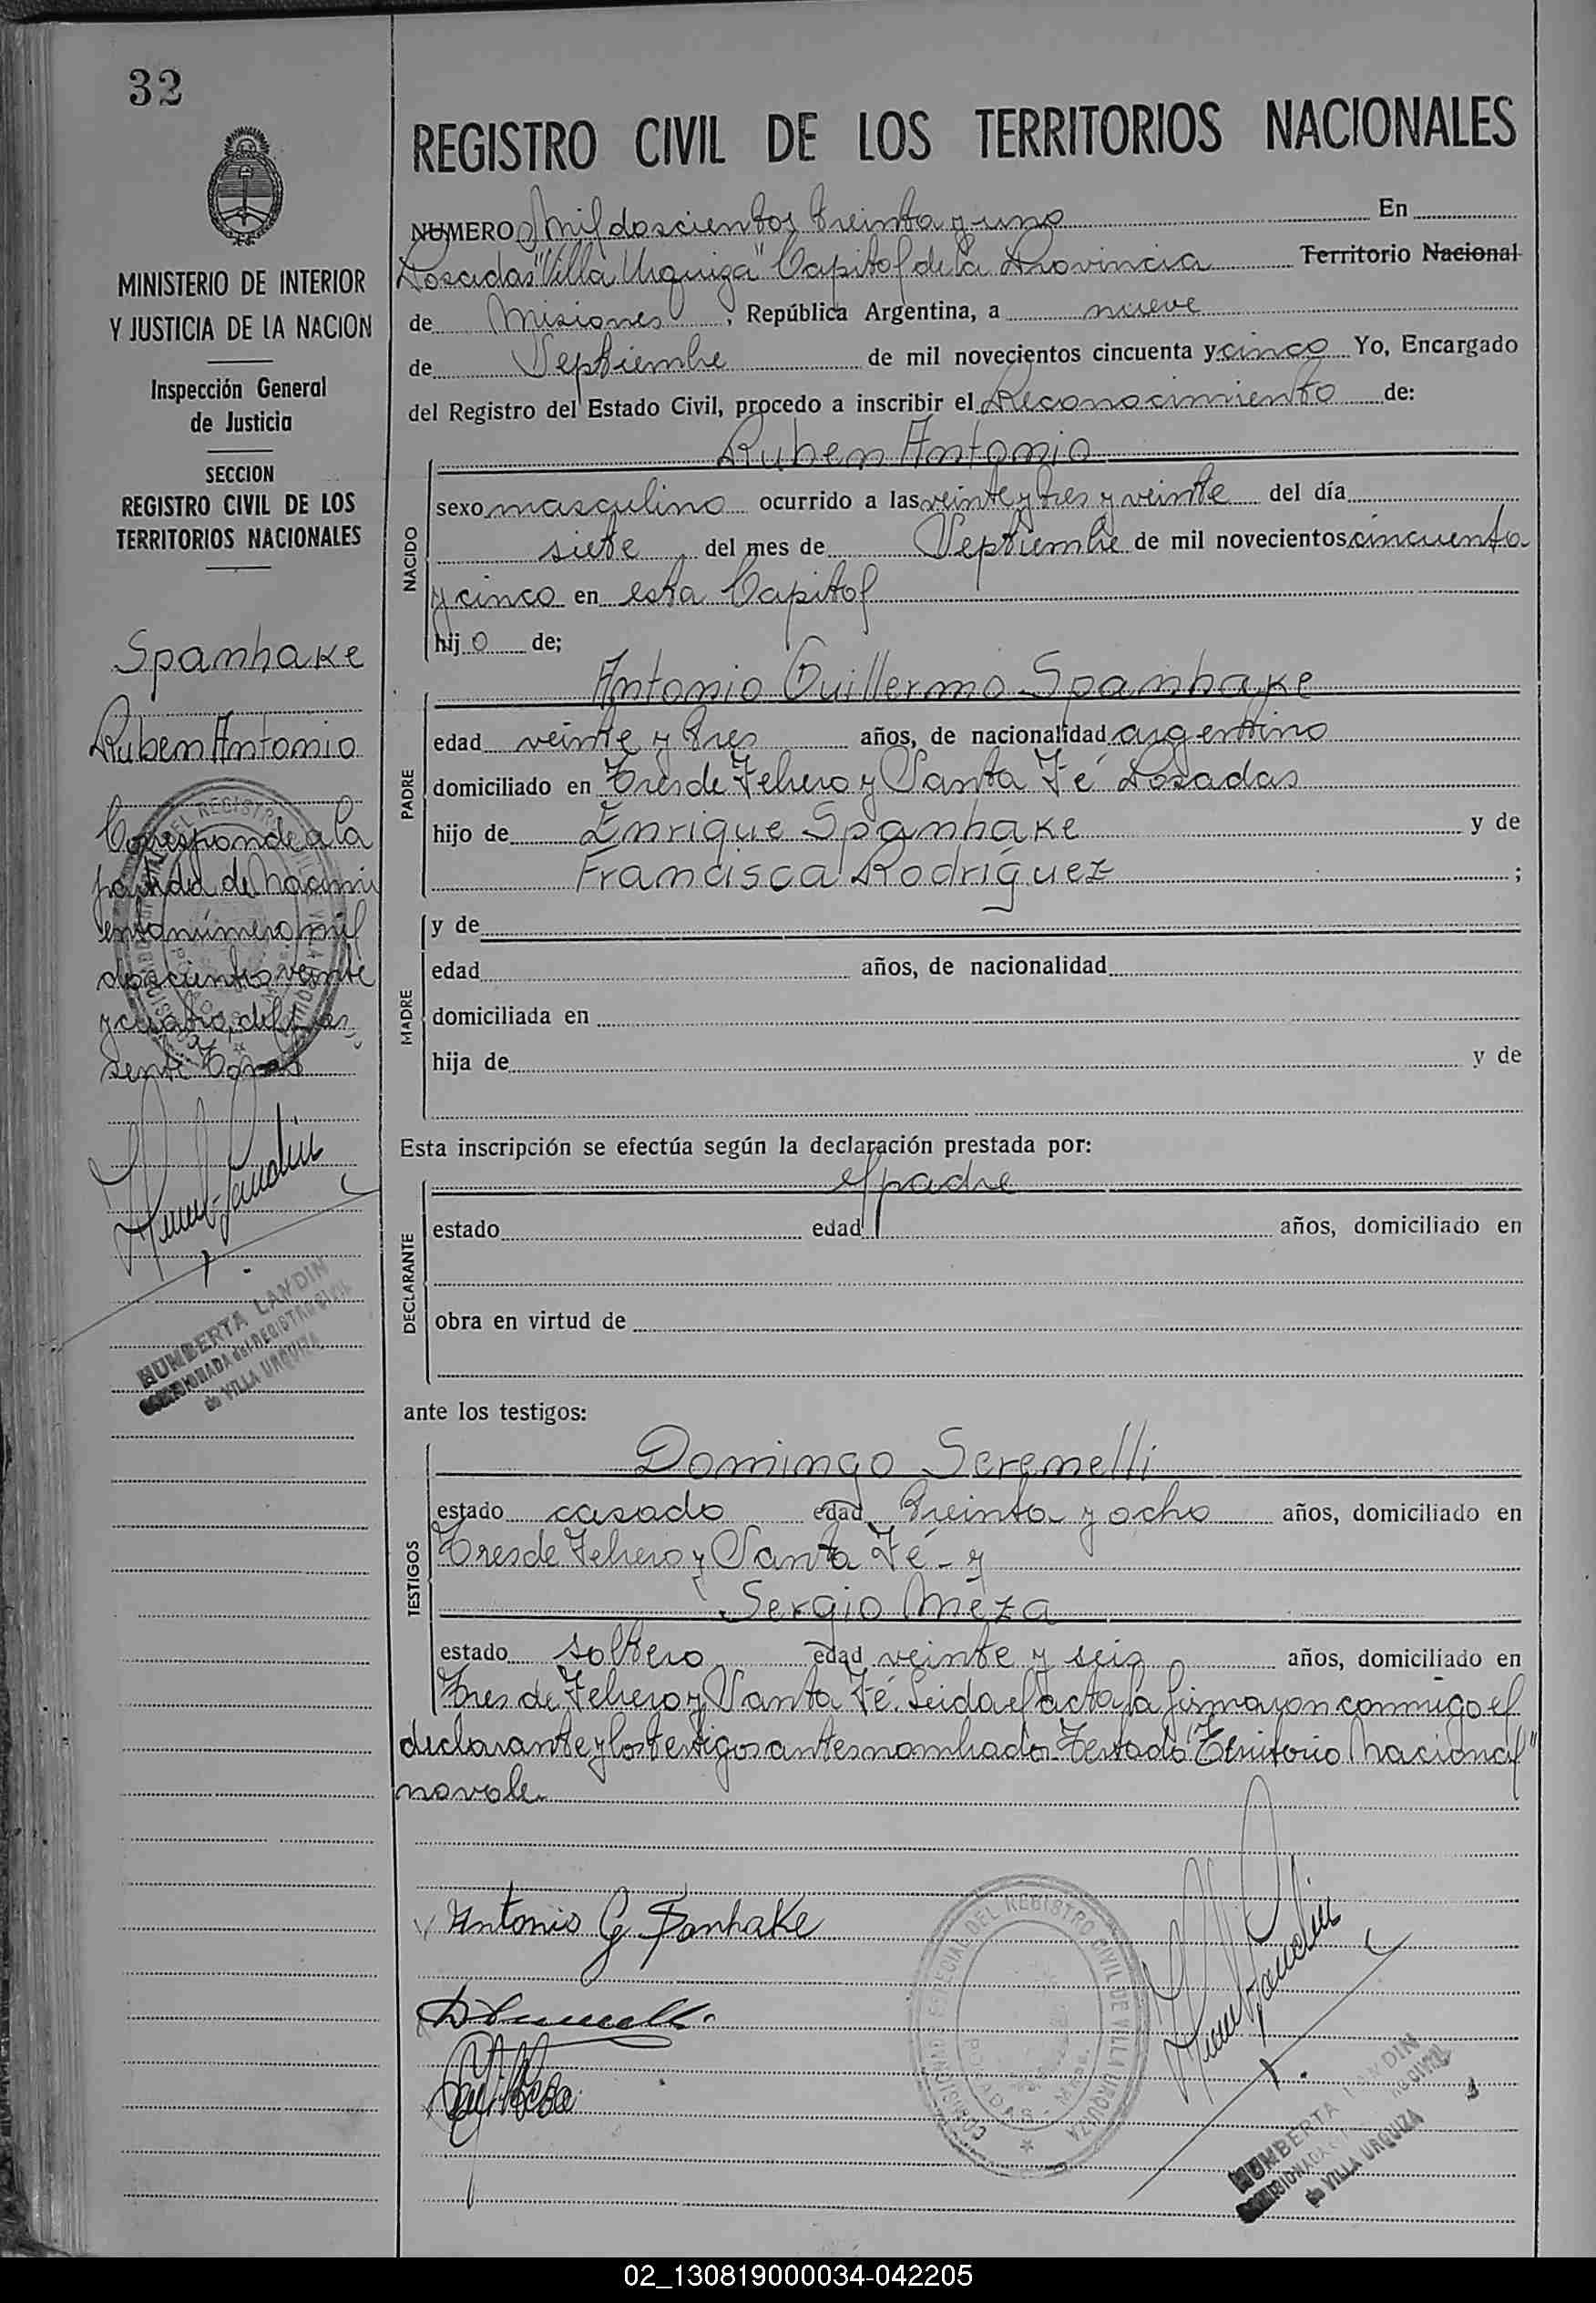 32
MINISTERIO DE INTERIOR
Y JUSTICIA DE LA NACION
Inspección General
de Justicia
SECCION
REGISTRO CIVIL DE LOS
TERRITORIOS NACIONALES
Spanhake
Ruben Antonio
Corresponde a la
partida de Nacimi
ento número mil
doscientos veinte
y cuatro, del pre
sente Tomo
HUMBERTA LANDIN
COMISIONADA del REGISTRO CIVIL
de VILLA URQUIZA
REGISTRO CIVIL DE LOS TERRITORIOS NACIONALES
NUMERO Mil doscientos treinta y uno En
Posadas "Villa Urquiza" Capital de la Provincia Territorio Nacional
de Misiones, República Argentina, a nueve
de Septiembre de mil novecientos cincuenta y cinco Yo, Encargado
del Registro del Estado Civil, procedo a inscribir el Reconocimiento de:
Ruben Antonio
NACIDO
sexo masculino ocurrido a las veinte y tres y veinte del día
siete del mes de Septiembre de mil novecientos cincuenta
y cinco en esta Capital
hijo de;
Antonio Guillermo Spanhake
PADRE
edad veinte y tres años, de nacionalidad argentino
domiciliado en Tres de Febrero y Santa Fé Posadas
hijo de Enrique Spanhake y de
Francisca Rodríguez ;
y de
MADRE
edad años, de nacionalidad
domiciliada en
hija de y de
Esta inscripción se efectúa según la declaración prestada por:
el padre
DECLARANTE
estado edad años, domiciliado en
obra en virtud de
ante los testigos:
Domingo Serenelli
TESTIGOS
estado casado edad treinta y ocho años, domiciliado en
Tres de Febrero y Santa Fé - y
Sergio Meza
estado soltero edad veinte y seis años, domiciliado en
Tres de Febrero y Santa Fé. Leida el acta la firmaron conmigo el
declarante y los testigos antes nombrados. Testado "Territorio Nacional"
no vale.
Antonio G Spanhake
COMISIONADO ESPECIAL DEL REGISTRO CIVIL DE VILLA URQUIZA
POSADAS - Mnes.
HUMBERTA LANDIN
COMISIONADA
de VILLA URQUIZA
02_130819000034-042205